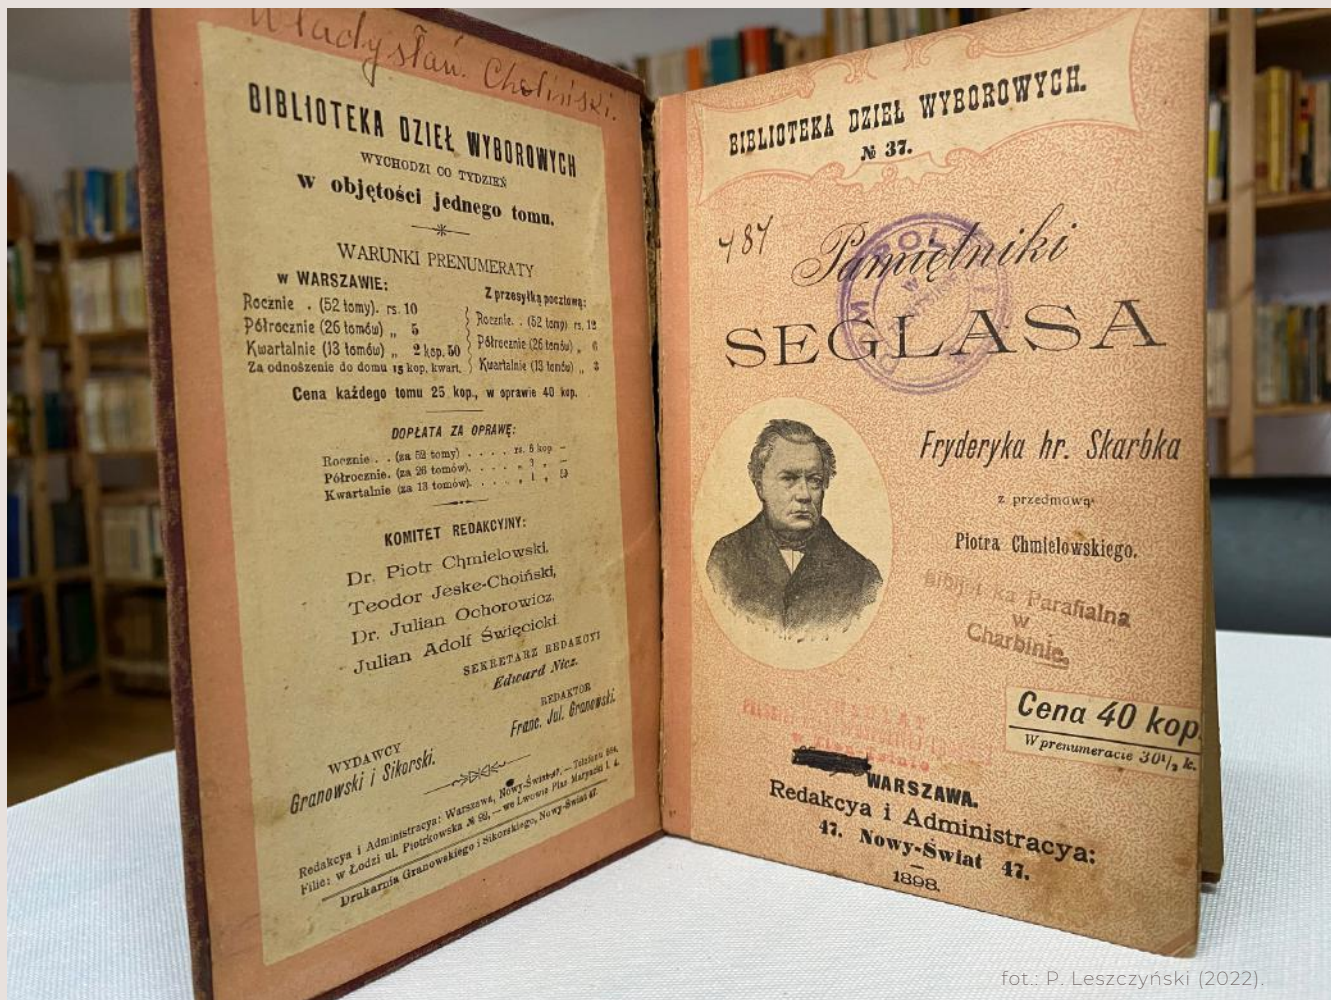 Władysław. Choliński.
BIBLIOTEKA DZIEŁ WYBOROWYCH
WYCHODZI CO TYDZIEŃ
w objętości jednego tomu.
WARUNKI PRENUMERATY
w WARSZAWIE:
Rocznie . (52 tomy). rs. 10
Półrocznie (26 tomów) „ 5
Kwartalnie (13 tomów) „ 2 kop. 50
Za odnoszenie do domu 15 kop. kwart.
Z przesyłką pocztową:
Rocznie. . (52 tomy) rs. 12
Półrocznie (26 tomów) „ 6
Kwartalnie (13 tomów) „ 3
Cena każdego tomu 25 kop., w oprawie 40 kop.
DOPŁATA ZA OPRAWĘ:
Rocznie . . (za 52 tomy) . . . . . rs. 6 kop. –
Półrocznie. (za 26 tomów). . . . . „ 3 „ –
Kwartalnie (za 13 tomów). . . . . „ 1 „ 50
KOMITET REDAKCYJNY:
Dr. Piotr Chmielowski,
Teodor Jeske-Choiński,
Dr. Julian Ochorowicz,
Julian Adolf Święcicki.
SEKRETARZ REDAKCYI
Edward Nicz.
REDAKTOR
Franc. Jul. Granowski.
WYDAWCY
Granowski i Sikorski.
Redakcya i Administracya: Warszawa, Nowy-Świat 47. — Telefonu
Filie: w Łodzi ul. Piotrkowska № 92, — we Lwowie Plac Maryacki l. 4.
Drukarnia Granowskiego i Sikorskiego, Nowy-Świat 47.
BIBLIOTEKA DZIEŁ WYBOROWYCH.
№ 37.
487
Pamiętniki
SEGLASA
Fryderyka hr. Skarbka
z przedmową
Piotra Chmielowskiego.
Biblioteka Parafialna
w
Charbinie
Cena 40 kop.
W prenumeracie 30½ k.
WARSZAWA.
Redakcya i Administracya:
47. Nowy-Świat 47.
1898.
fot.: P. Leszczyński (2022).